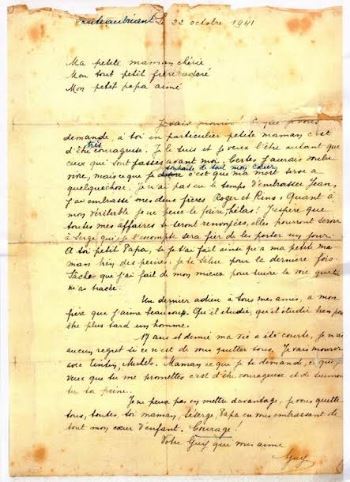 Chateaubriant, le 22 octobre 1941
Ma petite maman chérie
Mon tout petit frère adoré
Mon petit papa aimé
Je vais mourir! Ce que je vous
demande, à toi en particulier petite maman c'est
d'être très courageuse. Je le suis et je veux l'être autant que
ceux qui sont passés avant moi. Certes j'aurais voulu
vivre, mais ce que je souhaite de tout mon cœur c'est que ma mort serve à
quelque chose. Je n'ai pas eu le temps d'embrasser Jean,
j'ai embrassé mes deux frères Roger et Rino. Quant à
mon véritable je ne peux le faire, hélas! J'espère que
toutes mes affaires te seront renvoyées, elles pourront servir
à Serge qui je l'escompte sera fier de les porter un jour.
A toi petit Papa, si je t'ai fait ainsi qu'à ma petite ma-
man bien des peines, je te salue pour la dernière fois.
Sache que j'ai fait de mon mieux pour suivre la voie que tu
m'as tracée.
Un dernier adieu à tous mes amis, à mon
frère que j'aime beaucoup. Qu'il étudie, qu'il étudie bien pour
être plus tard un homme.
17 ans et demi ma vie a été courte, je n'ai
aucun regret si ce n'est de vous quitter tous. Je vais mourir
avec Tintin, Michels. Maman ce que je te demande, ce que je
veux que tu me promettes c'est d'être courageuse et de surmon-
ter ta peine.
Je ne peux pas en mettre davantage. Je vous quitte
tous, toutes toi maman, Séserge, Papa en vous embrassant de
tout mon cœur d'enfant. Courage!
Votre Guy qui vous aime
Guy